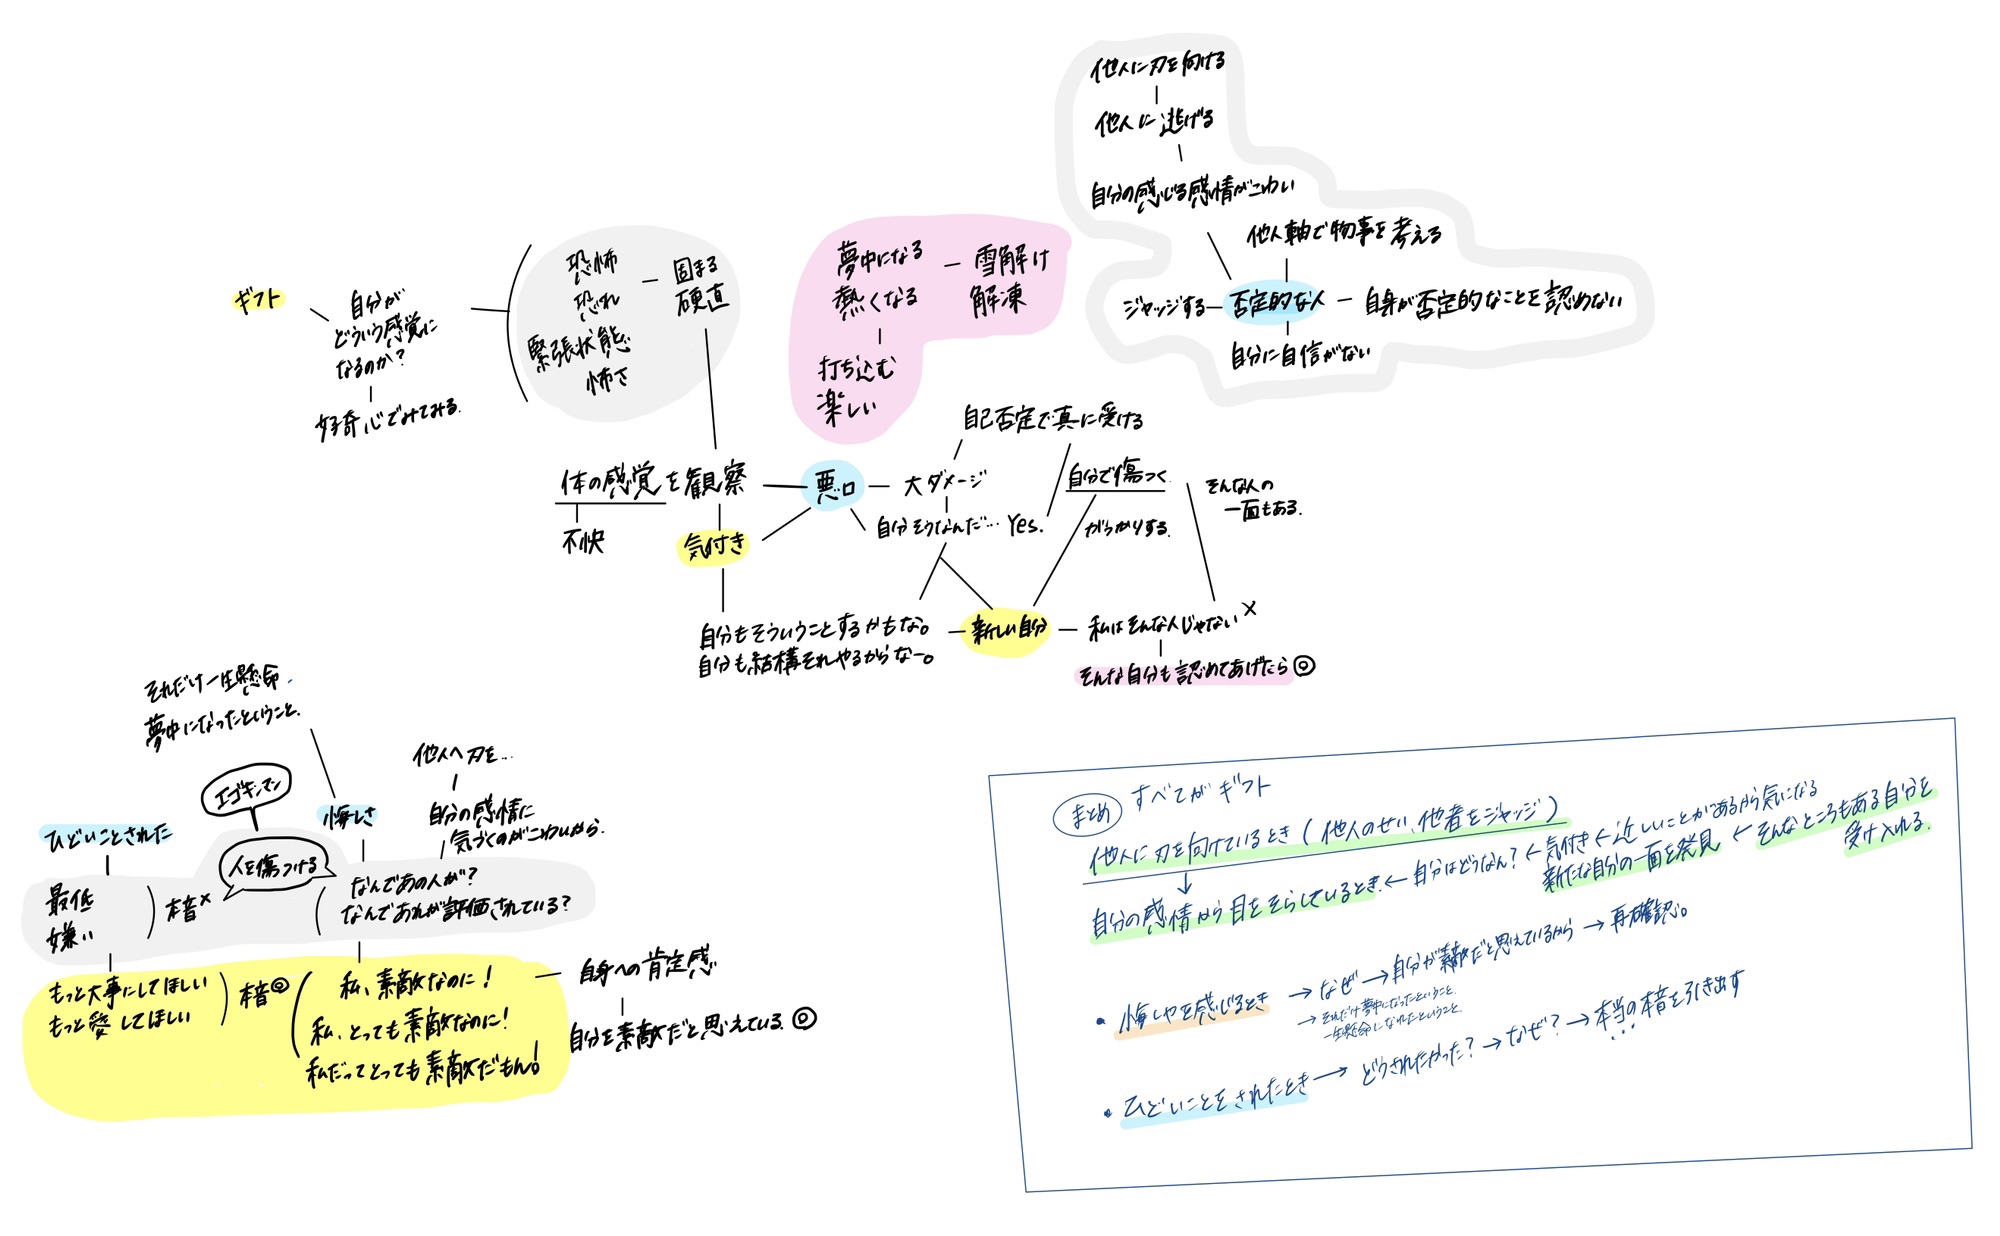 他人に刃を向ける
他人に逃げる
自分の感じる感情がこわい
他人軸で物事を考える
ジャッジする
否定的な人
自身が否定的なことを認めない
自分に自信がない
ギフト
自分が
どういう感覚に
なるのか?
好奇心でみてみる.
恐怖
恐れ
緊張状態
怖さ
固まる
硬直
夢中になる
熱くなる
雪解け
解凍
打ち込む
楽しい
体の感覚を観察
不快
気付き
悪口
大ダメージ
自己否定で真に受ける
自分そうなんだ… Yes.
自分で傷つく
がっかりする.
そんな人の
一面もある.
自分もそういうことするかもな。
自分も結構それやるからなー。
新しい自分
私はそんな人じゃない×
そんな自分も認めてあげたら◎
それだけ一生懸命.
夢中になったということ.
エゴギンマン
人を傷つける
ひどいことされた
最低
嫌い
本音×
悔しさ
他人へ刃を…
自分の感情に
気づくのがこわいから.
なんであの人が?
なんであれが評価されている?
もっと大事にしてほしい
もっと愛してほしい
本音◎
私、素敵なのに!
私、とっても素敵なのに!
私だってとっても素敵だもん!
自身への肯定感
自分を素敵だと思えている.◎
まとめ すべてがギフト
他人に刃を向けているとき(他人のせい、他者をジャッジ)
↓
自分の感情から目をそらしているとき.←自分はどうなん?←気付き←近しいことがあるから気になる
新たな自分の一面を発見 ← そんなところもある自分を
受け入れる.
• 悔しやを感じるとき → なぜ → 自分が素敵だと思えているから → 再確認。
→ それだけ夢中になったということ.
一生懸命になれたということ.
• ひどいことをされたとき → どうされたかった? → なぜ? → 本当の本音を引き出す